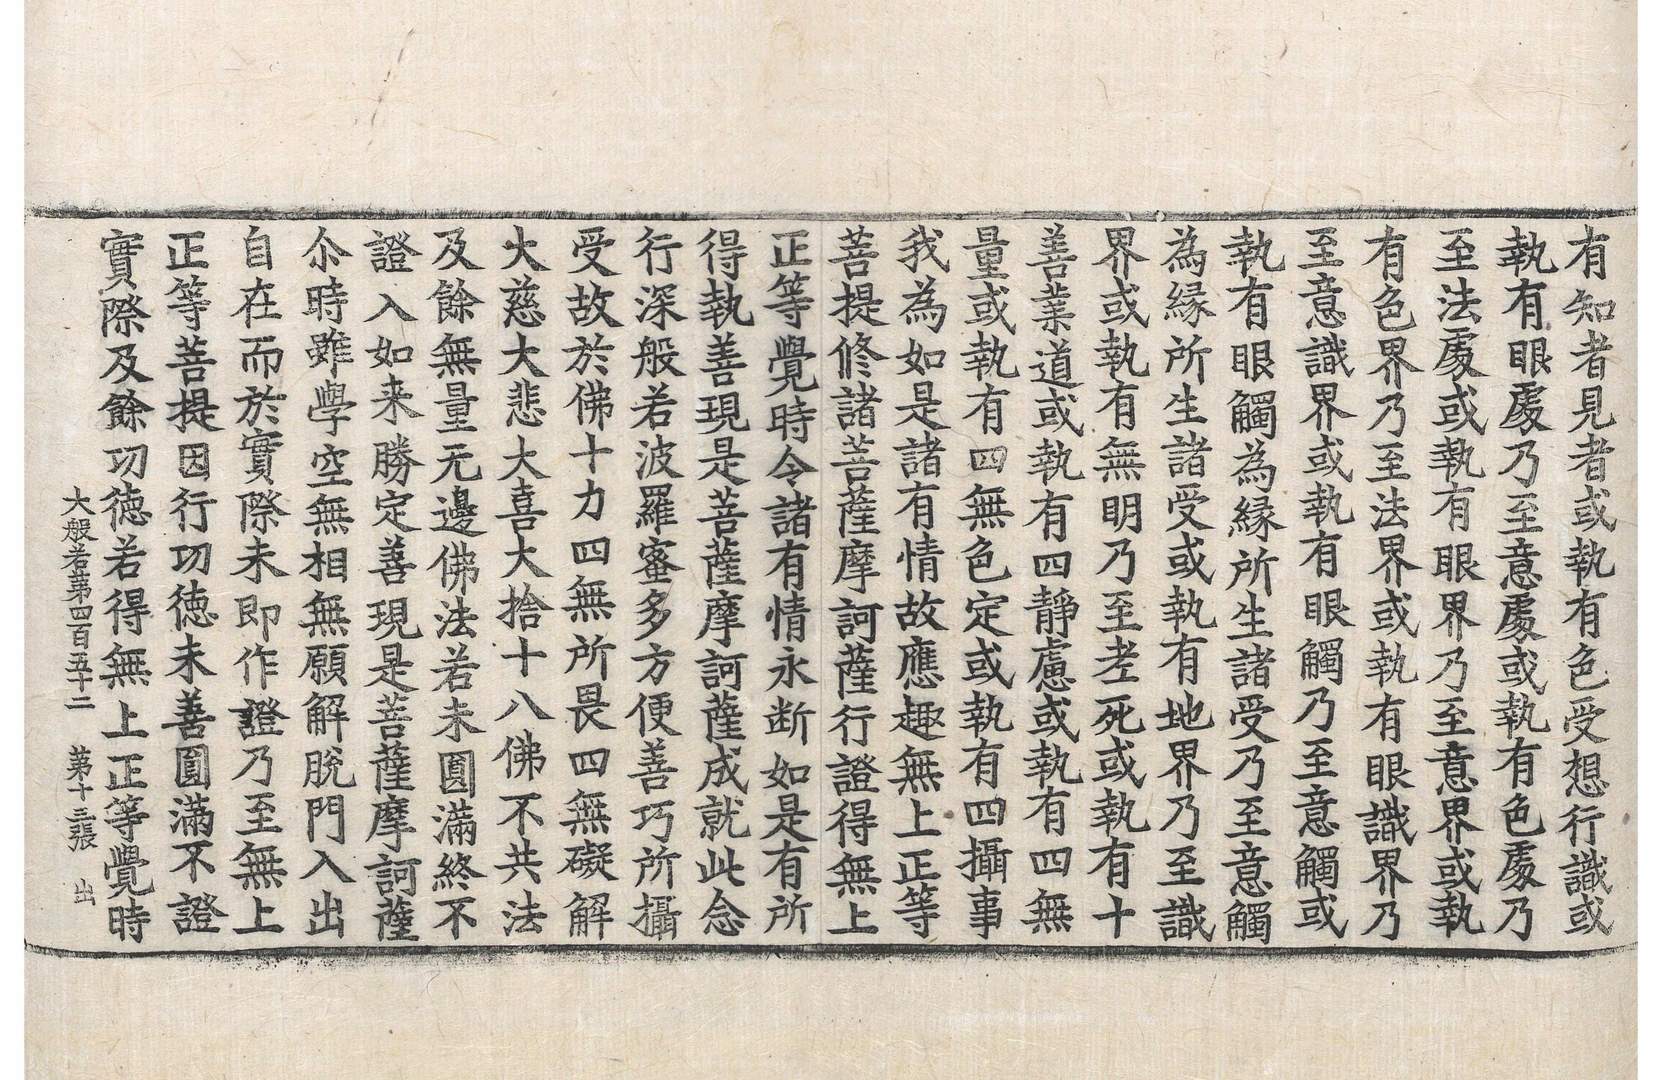 有知者見者或執有色受想行識或
執有眼處乃至意處或執有色處乃
至法處或執有眼界乃至意界或執
有色界乃至法界或執有眼識界乃
至意識界或執有眼觸乃至意觸或
執有眼觸為緣所生諸受乃至意觸
為緣所生諸受或執有地界乃至識
界或執有無明乃至老死或執有十
善業道或執有四靜慮或執有四無
量或執有四無色定或執有四攝事
我為如是諸有情故應趣無上正等
菩提修諸菩薩摩訶薩行證得無上
正等覺時令諸有情永断如是有所
得執善現是菩薩摩訶薩成就此念
行深般若波羅蜜多方便善巧所攝
受故於佛十力四無所畏四無礙解
大慈大悲大喜大捨十八佛不共法
及餘無量无邊佛法若未圓滿終不
證入如来勝定善現是菩薩摩訶薩
尒時雖學空無相無願解脫門入出
自在而於實際未即作證乃至無上
正等菩提因行功徳未善圓滿不證
實際及餘功徳若得無上正等覺時
大般若第四百五十二 第十三張 出